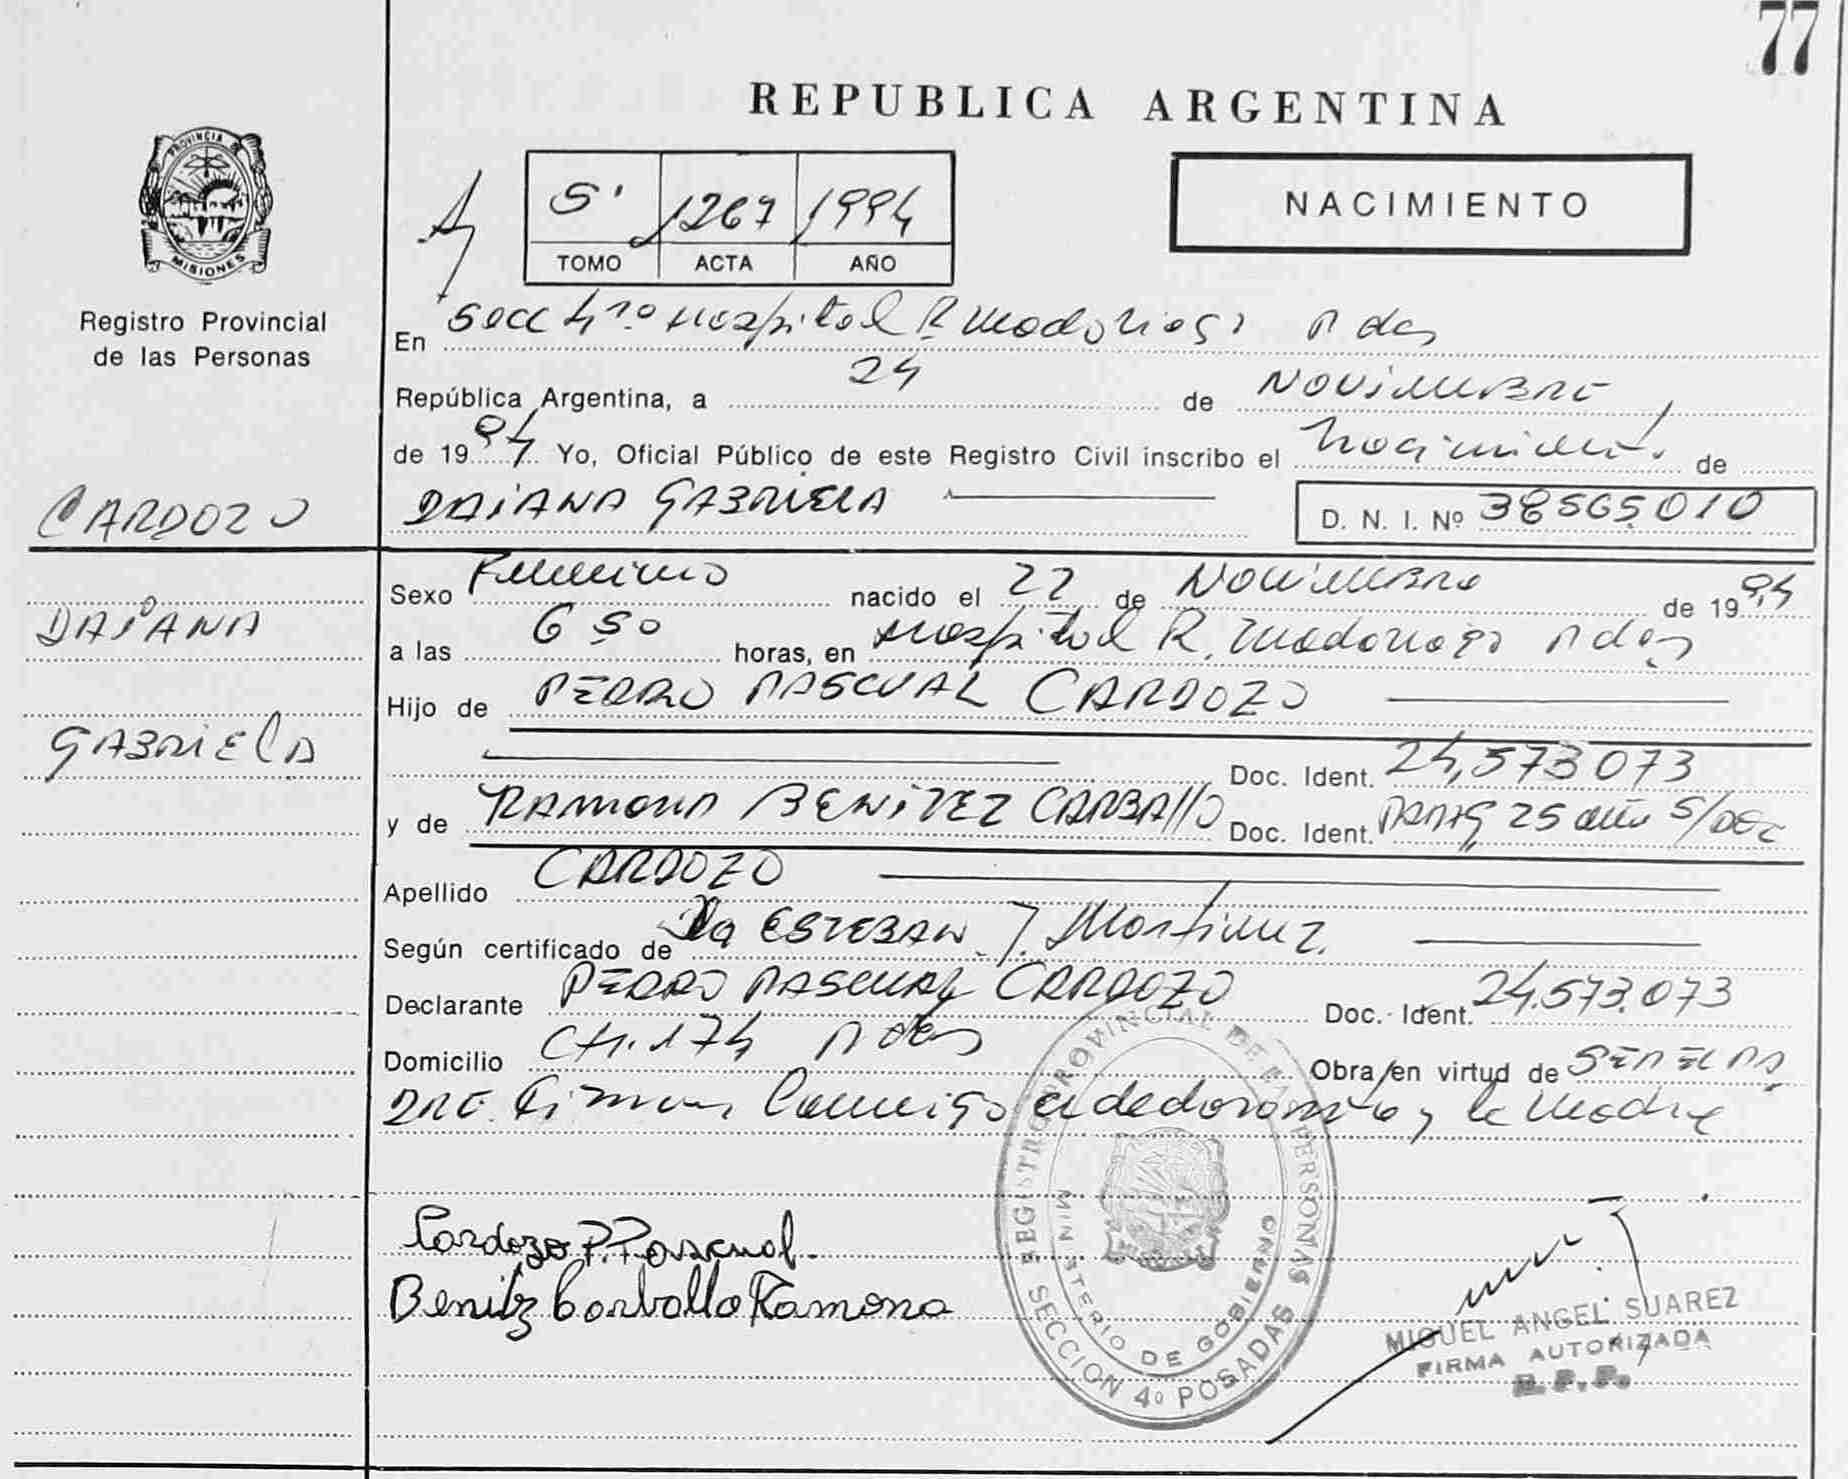 77
REPUBLICA ARGENTINA
PROVINCIA DE
MISIONES
Registro Provincial
de las Personas
5' 1267 1994
TOMO ACTA AÑO
NACIMIENTO
En Secc 4ta Hospital R. Madariaga Pdas
República Argentina, a 24 de NOVIEMBRE
de 1994 Yo, Oficial Público de este Registro Civil inscribo el nacimiento de
CARDOZO
DAIANA GABRIELA
D. N. I. Nº 38565010
DAIANA
GABRIELA
Sexo Femenino nacido el 22 de NOVIEMBRE de 1994
a las 6 50 horas, en Hospital R. Madariaga Pdas
Hijo de PEDRO PASCUAL CARDOZO
Doc. Ident. 24,573073
y de RAMONA BENITEZ CARBALLO Doc. Ident. PARAG 25 años S/DOC
Apellido CARDOZO
Según certificado de ESTEBAN J. Martinez.
Declarante PEDRO PASCUAL CARDOZO Doc. Ident. 24.573.073
Domicilio CH. 174 Pdas Obra en virtud de SER EL PA
DRE. Firman Conmigo el declarante y la Madre
Cardozo P. Pascual.
Benitez Carballo Ramona
REGISTRO PROVINCIAL DE LAS PERSONAS
MINISTERIO DE GOBIERNO
SECCION 4º POSADAS
MIGUEL ANGEL SUAREZ
FIRMA AUTORIZADA
R.P.P.